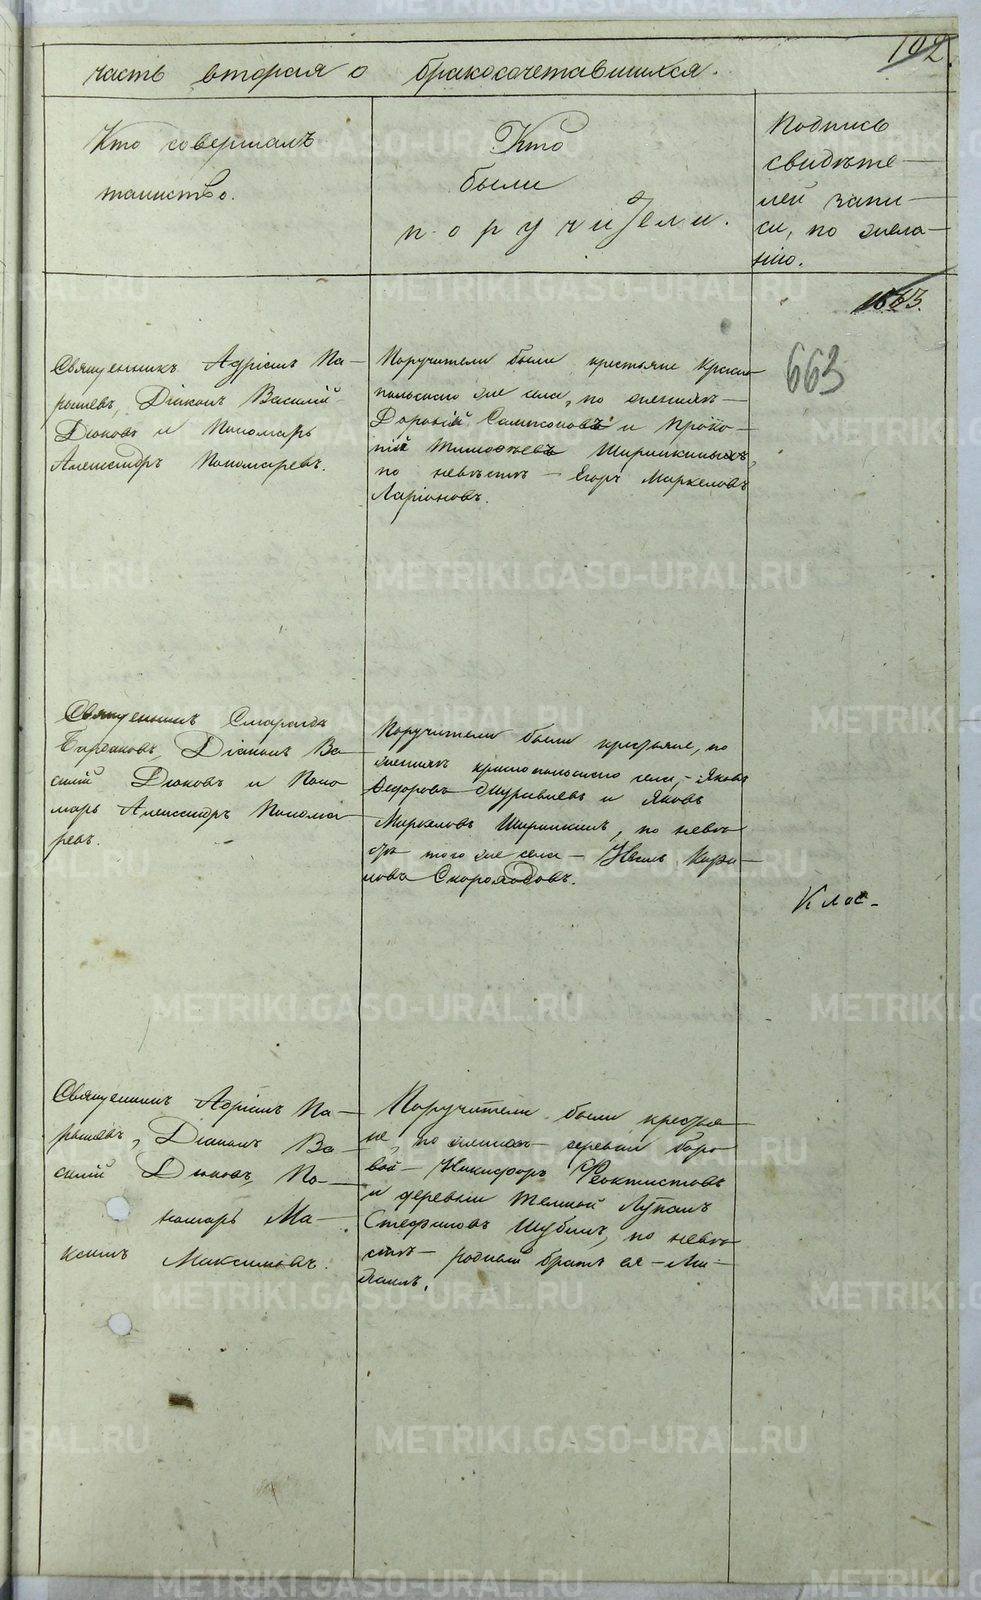 102.
часть вторая о бракосочетавшихся.
Кто совершалъ
таинство.
Кто
были
поручители.
Подпись
свидѣте-
лей запи-
си, по жела-
нію.
663
Священникъ Адріанъ Па-
рышевъ, Діаконъ Василій
Дюковъ и Пономарь
Александръ Пономаревъ.
Поручители были крестьяне Красно-
полоскаго же села, по женихѣ-
Дорофей Сампсоновъ и Проко-
пій Тимофѣевъ Ширинкины,
по невѣстѣ - Егоръ Маркеловъ
Ларіоновъ.
Священникъ Смарагдъ
Діаконъ Ва-
силій Дюковъ и Поно
марь Александръ Понома
ревъ.
Поручители были крестьяне, по
женихѣ краснополоскаго села, - Яковъ
Федоровъ Журавлевъ и Яковъ
Маркеловъ Ширинкинъ, по невѣ
стѣ того же села -
Скороходовъ.
Священникъ Адріанъ Па-
рышевъ, Діаконъ Ва-
силій Дюковъ, По-
номарь Ма-
ксимъ Максимовъ.
Поручители были крестья
не, по женихѣ деревни Боро
вой - Никифоръ Феоктистовъ
и деревни Темной Лупанъ
Стефановъ Шубинъ, по невѣ
стѣ - родный братъ ея - Ми-
хаилъ.
METRIKI.GASO-URAL.RU